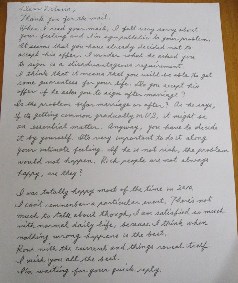 Dear Friend,
Thank you for the mail.
When I read your mail, I felt very sorry about
your feeling and I'm sympathetic to your problem.
It seems that you have already decided not to
accept his offer. I wonder what he asked you
to sign is a disadvantageous requirement.
I think that it means that you will be able to get
some guarantees for your life. Do you accept his
offer if he asks you to sign after marriage?
Is the problem before marriage or after? As he says,
if it's getting common gradually in U.S, it might be
an essential matter. Anyway, you have to decide
it by yourself. It's very important to do it along
your intimate feeling. If he is not rich, the problem
would not happen. Rich people are not always
happy, are they?
I was totally happy most of the time in 2010,
I can't remember a particular event. There's not
much to talk about though, I am satisfied so much
with normal daily life, because I think when
nothing wrong happens is the best.
Row with the current and things reveal itself
I wish you all the best.
I'm waiting for your quick reply.